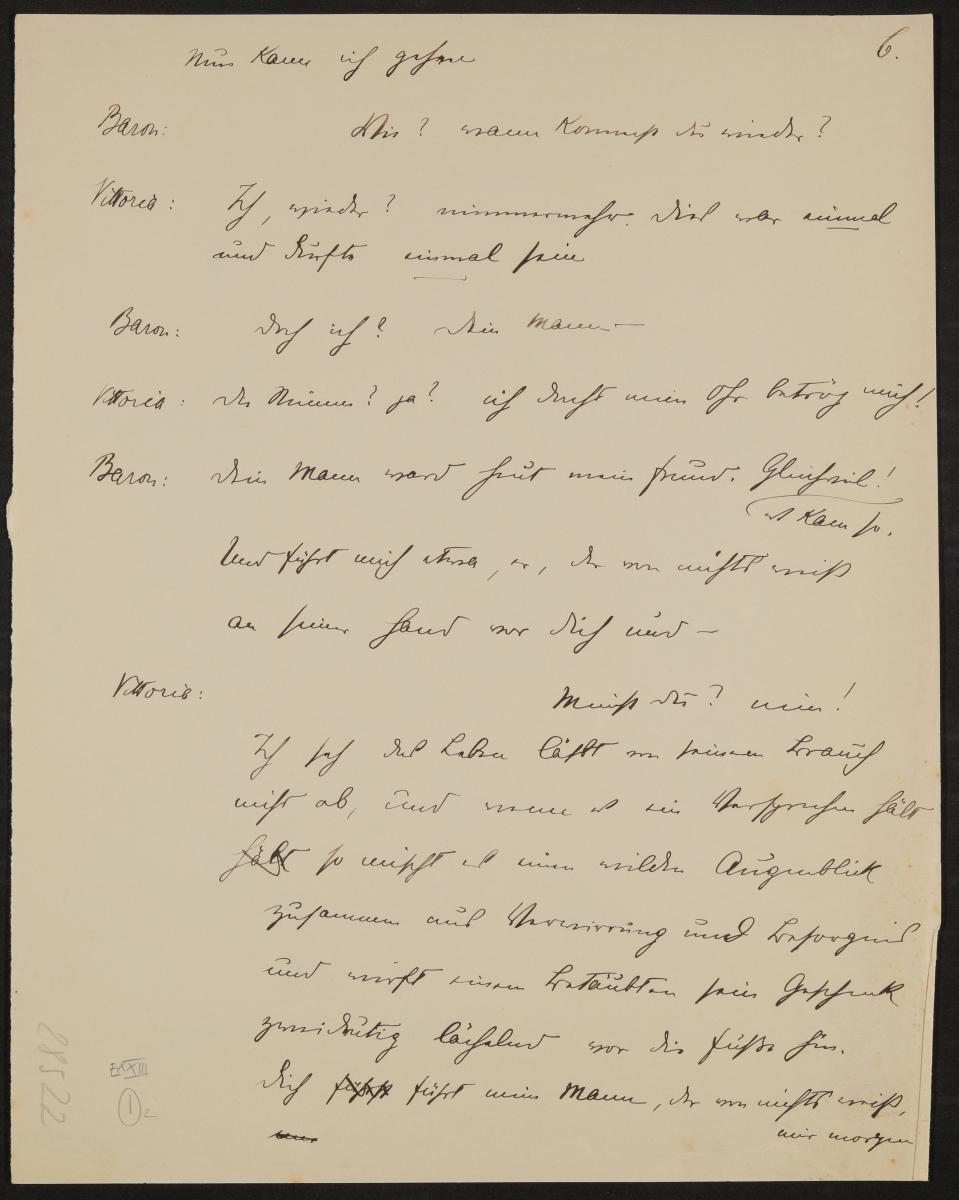 6.
Nun kann ich gehen
Baron: Wie? wann kommst du wieder?
Vittoria: Ich, wieder? nimmermehr. Dies war einmal
und durfte einmal sein
Baron: Doch ich? dein Mann –
Vittoria: ja? ich dacht mein Ohr betrög mich!
Baron: dein Mann ward heut mein Freund. Gleichviel!
es kam so.
Und führt mich etwa, er, der von nichts weiß
an seiner Hand vor dich und –
Vittoria: Meinst du? nein!
Ich seh das Leben läßt von seinem Brauch
nicht ab, und wenn es ein Versprechen hält
hält so mischt es einen wilden Augenblick
zusammen aus Verwirrung und Besorgnis
und wirft einem Betäubten sein Geschenk
zweideutig lächelnd vor die Füße hin.
Dich führt mein Mann, der von nichts weiß,
mir morgen
EXXIII
1
2
28522